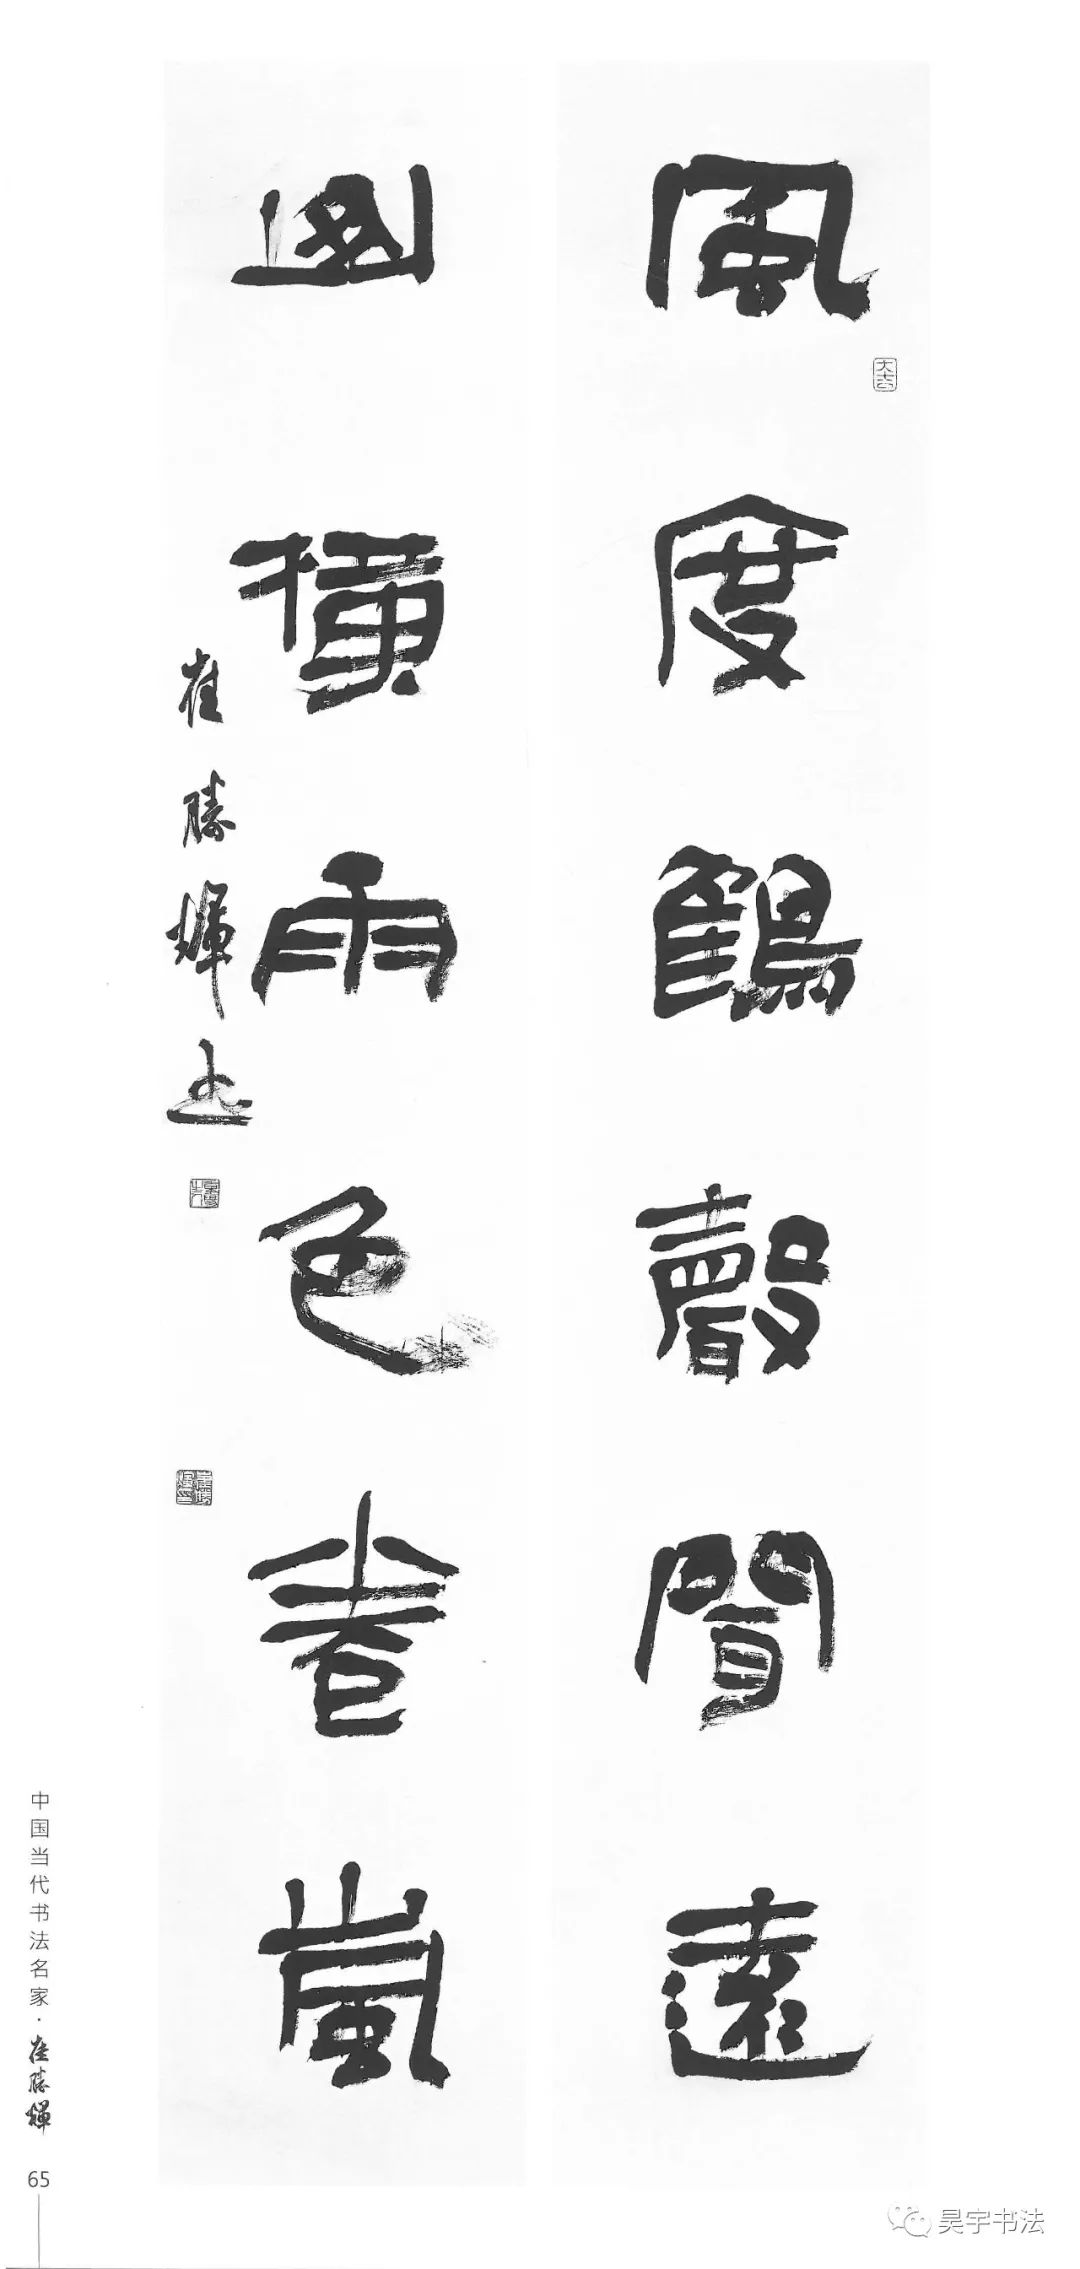 風度鶴聲聞遠
山橫雨色卷嵐
崔勝輝書
大吉
中国当代书法名家·崔勝輝
65
昊宇书法